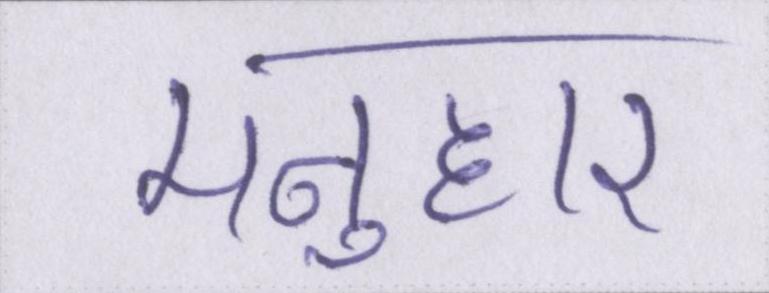 मनुहार